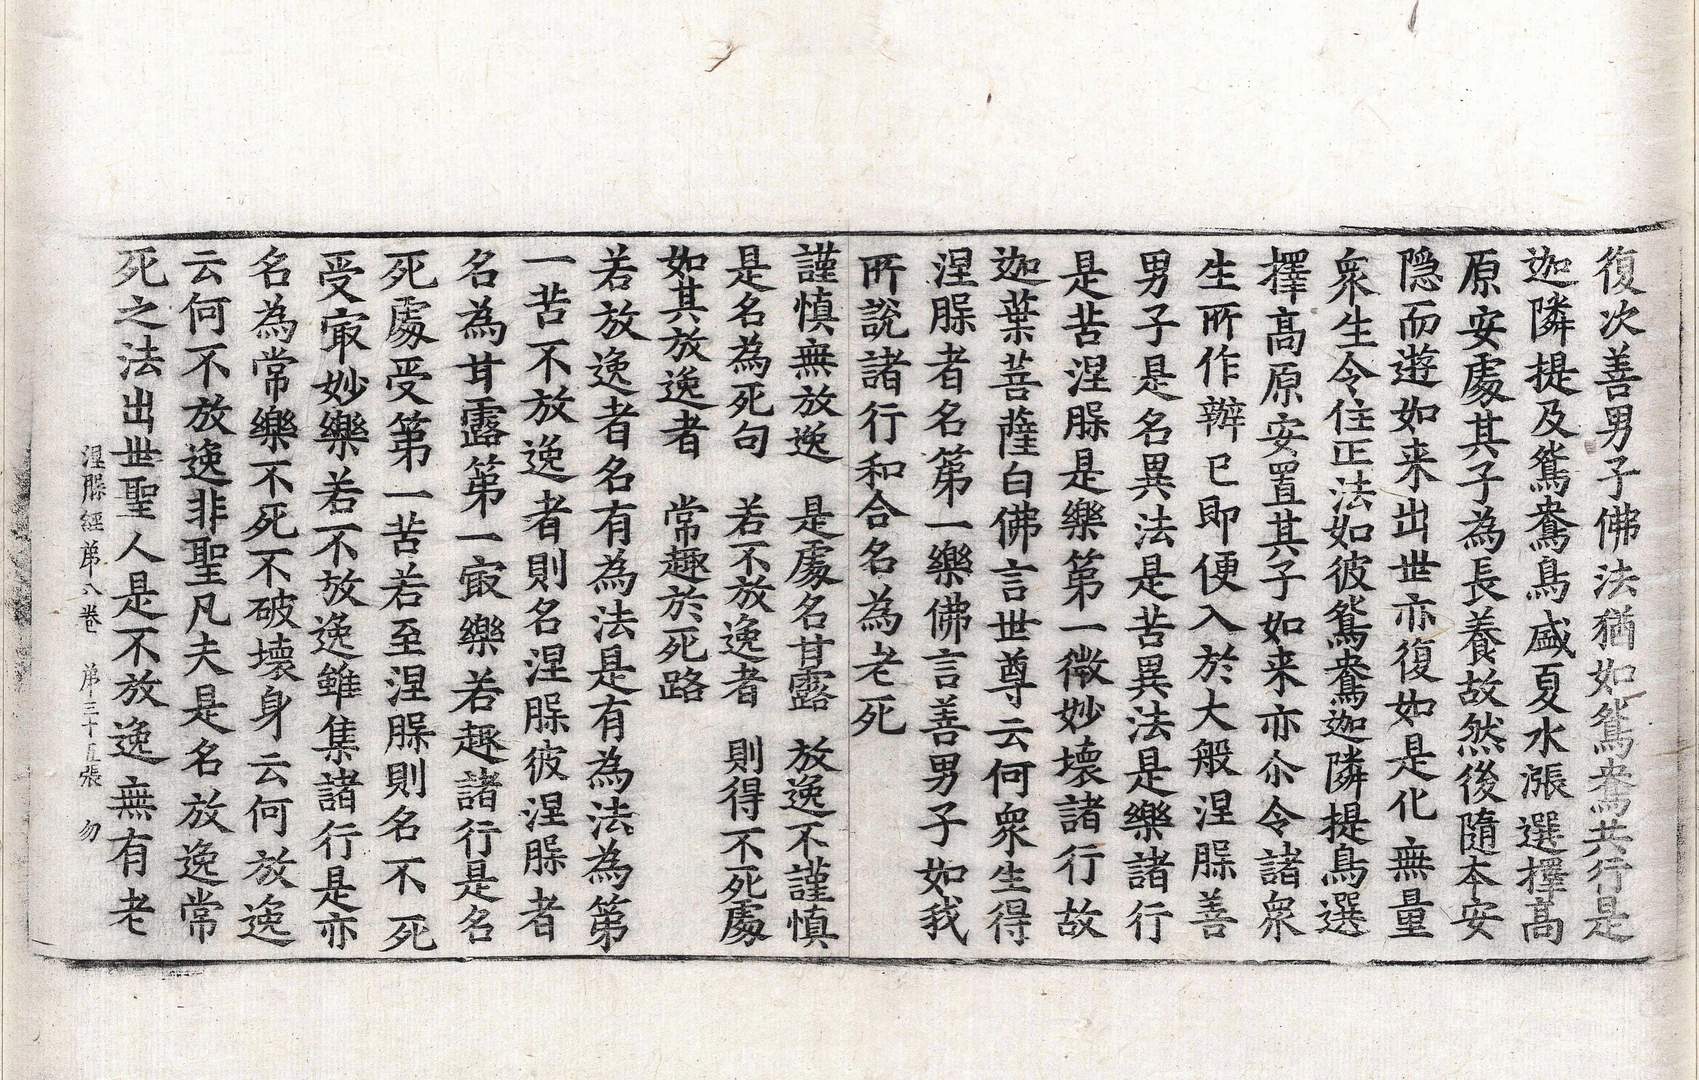 復次善男子佛法猶如鴛鴦共行是
迦隣提及鴛鴦鳥盛夏水漲選擇高
原安處其子為長養故然後隨本安
隱而遊如来出世亦復如是化無量
衆生令住正法如彼鴛鴦迦隣提鳥選
擇高原安置其子如来亦尒令諸衆
生所作辦已即便入於大般涅槃善
男子是名異法是苦異法是樂諸行
是苦涅槃是樂第一微妙壞諸行故
迦葉菩薩白佛言世尊云何衆生得
涅槃者名第一樂佛言善男子如我
所說諸行和合名為老死
謹慎無放逸　是處名甘露　放逸不謹慎
是名為死句　若不放逸者　則得不死處
如其放逸者　常趣於死路
若放逸者名有為法是有為法為第
一苦不放逸者則名涅槃彼涅槃者
名為甘露第一㝡樂若趣諸行是名
死處受第一苦若至涅槃則名不死
受㝡妙樂若不放逸雖集諸行是亦
名為常樂不死不破壞身云何放逸
云何不放逸非聖凡夫是名放逸常
死之法出世聖人是不放逸無有老
涅槃經第八卷　第三十五張　勿